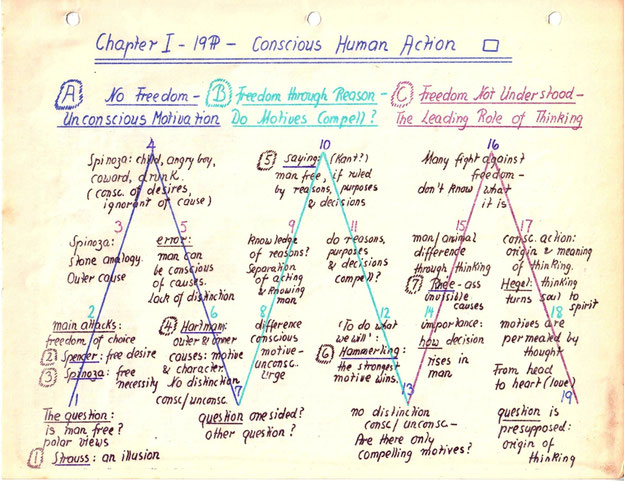 Chapter I - 19 PP - Conscious Human Action
A No Freedom -
Unconscious Motivation
B Freedom through Reason -
Do Motives Compell?
C Freedom Not Understood -
The Leading Role of Thinking
4
Spinoza: child, angry boy,
coward, drunk.
(consc. of desires,
ignorant of cause)
3
Spinoza:
stone analogy.
Outer cause
5
error:
man can
be conscious
of causes.
Lack of distinction
2
main attacks:
freedom of choice
2 Spencer: free desire
3 Spinoza: free
necessity
6
4 Hartman:
outer & inner
causes: motive
& character.
No distinction
consc/unconsc.
1
The question:
is man free?
polar views
1 Strauss: an illusion
7
question onesided?
other question?
10
5 saying: (Kant?)
man free, if ruled
by reasons, purposes
& decisions
9
knowledge
of reasons?
Separation
of acting
& knowing
man
11
do reasons,
purposes
& decisions
compell?
8
difference
conscious
motive -
unconsc.
urge
12
'To do what
we will':
6 Hammerling:
the strongest
motive wins.
13
no distinction
consc/unconsc -
Are there only
compelling motives?
16
Many fight against
freedom -
don't know what
it is
15
man/animal
difference
through thinking
7 Rhee - ass
invisible
causes
17
consc. action:
origin & meaning
of thinking.
Hegel: thinking
turns soul to
spirit
14
importance:
how decision
rises in
man
18
motives are
permeated by
thought
From head
to heart (love)
19
question is
presupposed:
origin of
thinking